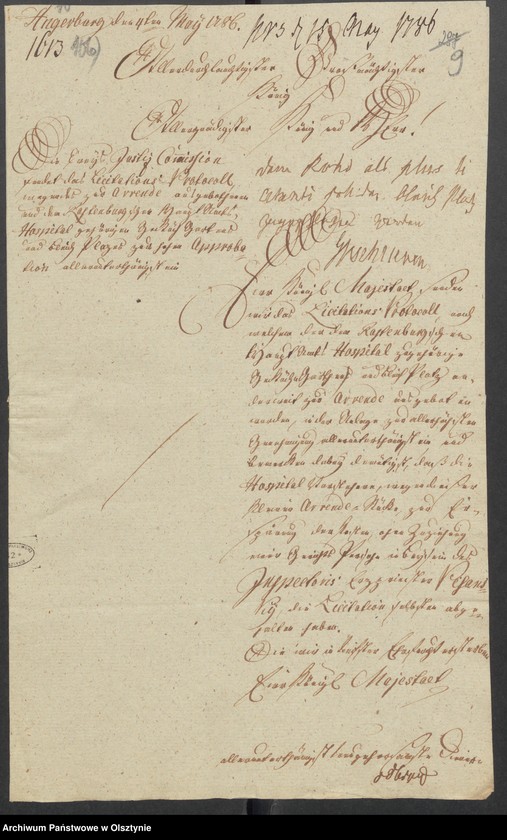 Angerburg den 4ten May 1786.
prs d 15 May 1786
1613
9
Allerdurchlauchtigster Großmächtigster
König
Allergnädigster König und Herr!
Die Königl Justiz Commission
sendet das Licitations Protocoll,
wegen des zur Arrende ausgebothenen
und dem Rastenburgschen Haupt Amts
Hospital gehörigen Garthens
und Bleich Platzes zur hohen Approba
tion allerunterthänigst ein
dem Rohd als plus li
citanti soll der Bleich Platz
zugeschlagen werden
Euer Königl Majestaet senden
wir das Licitations Protocoll, nach
welchem der dem Rastenburgschen
Haupt Amts Hospital zugehörige
Garthen und Bleich Platz an
derweit zur Arrende ausgebothen
worden, in der Anlage zur allerhöchsten
Genehmigung allerunterthänigst ein und
bemerken dabey, daß die
Hospital Vorstehere, wegen dieser
kleinen Arrende Stücke, zur Er
sparung der Kosten, ohne Zuziehung
einer Gerichts Persohn im Beyseyn des
Inspectoris
die Licitation selbsten abge
halten haben.
Die wir in tiefster Ehrfurcht ersterben
Euer Königl Majestaet
allerunterthänigst treugehorsamste Diener
Archiwum Państwowe w Olsztynie